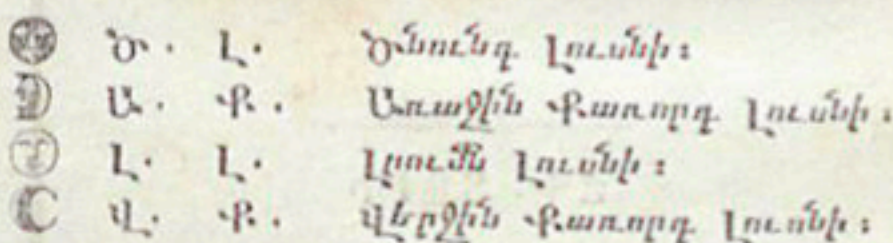 Ծ. Լ. Ծնունդ Լուսնի։
Ա. Ք. Առաջին Քառորդ Լուսնի։
Լ. Լ. Լրումն Լուսնի։
Վ. Ք. Վերջին Քառորդ Լուսնի։